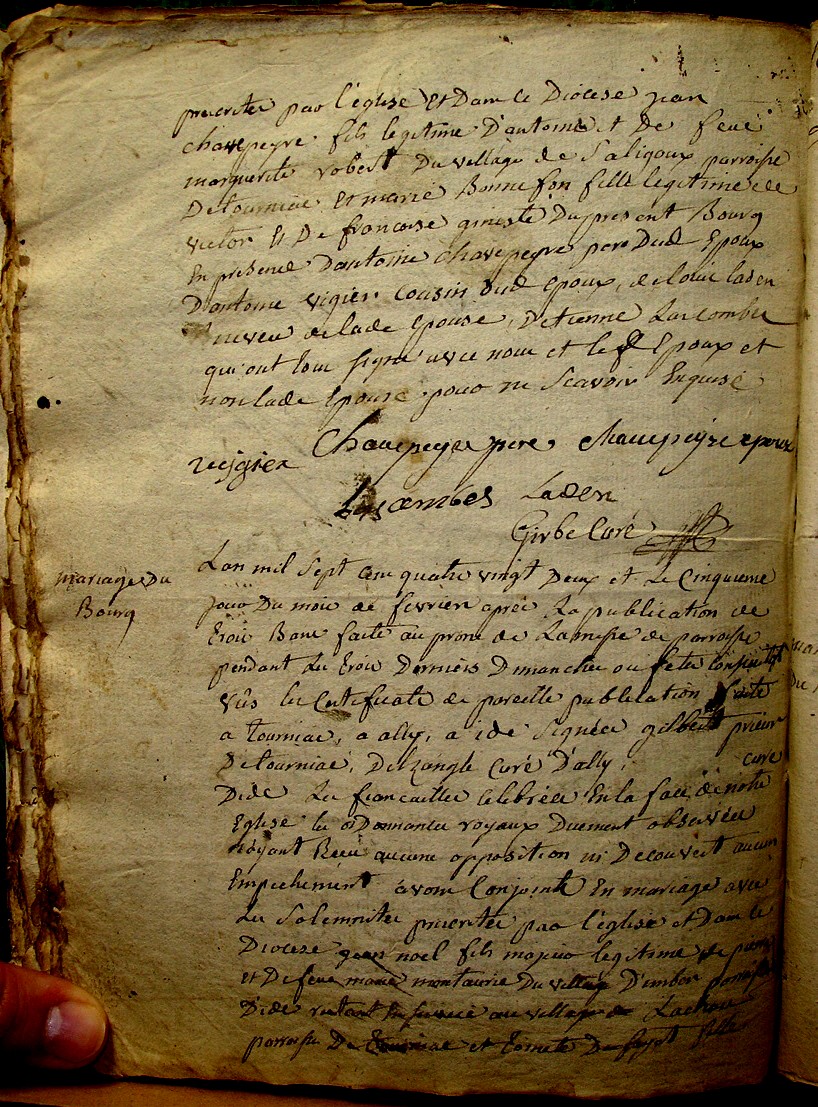 prescrites par l'église Et Dans le Diocese jean
chavepeyre fils legitime D'antoine et De feue
marguerite robert Du village de Saligoux parroisse
De tourniac Et marie Bonnefon fille legitime de
victor Et De francoise gineste Du present Bourg
En presence D'antoine chavepeyre pere Dud Epoux
D'antoine vigier cousin dud epoux, de louis laden
neveu de lade Epouse, D'etienne Lacombe
qui ont tous signé avec nous et led Epoux et
non lade Epouse pour ne scavoir Enquise
veigier Chavepeyre pere chauepeyre epoux
Lacombes Laden
Girbe Curé
mariage Du
Bourg
L'an mil sept cent quatre vingt Deux et Le Cinquieme
jour Du mois de fevrier après La publication de
trois Bans faite au prone de La messe de parroisse
pendant Les trois Derniers Dimanches ou fetes
Vûs les Certificats de pareille publication faite
a tourniac, a ally, a ide signés gilbert prieur
De tourniac, Delzangle curé D'ally, curé
Dide Les fiancailles celebrées En la face de notre
Eglise les ordonnances royaux Duement observées
n'ayant Recu aucune opposition ni Decouvert aucun
Empechement avons Conjoint En mariage avec
Les solemnites prescrites par l'église et Dans le
Diocese jean noel fils majeur legitime de pierre
et De feue marie montaurie Du village D'embor parroisse
D'ide restant En service au village de
parroisse De tourniac et